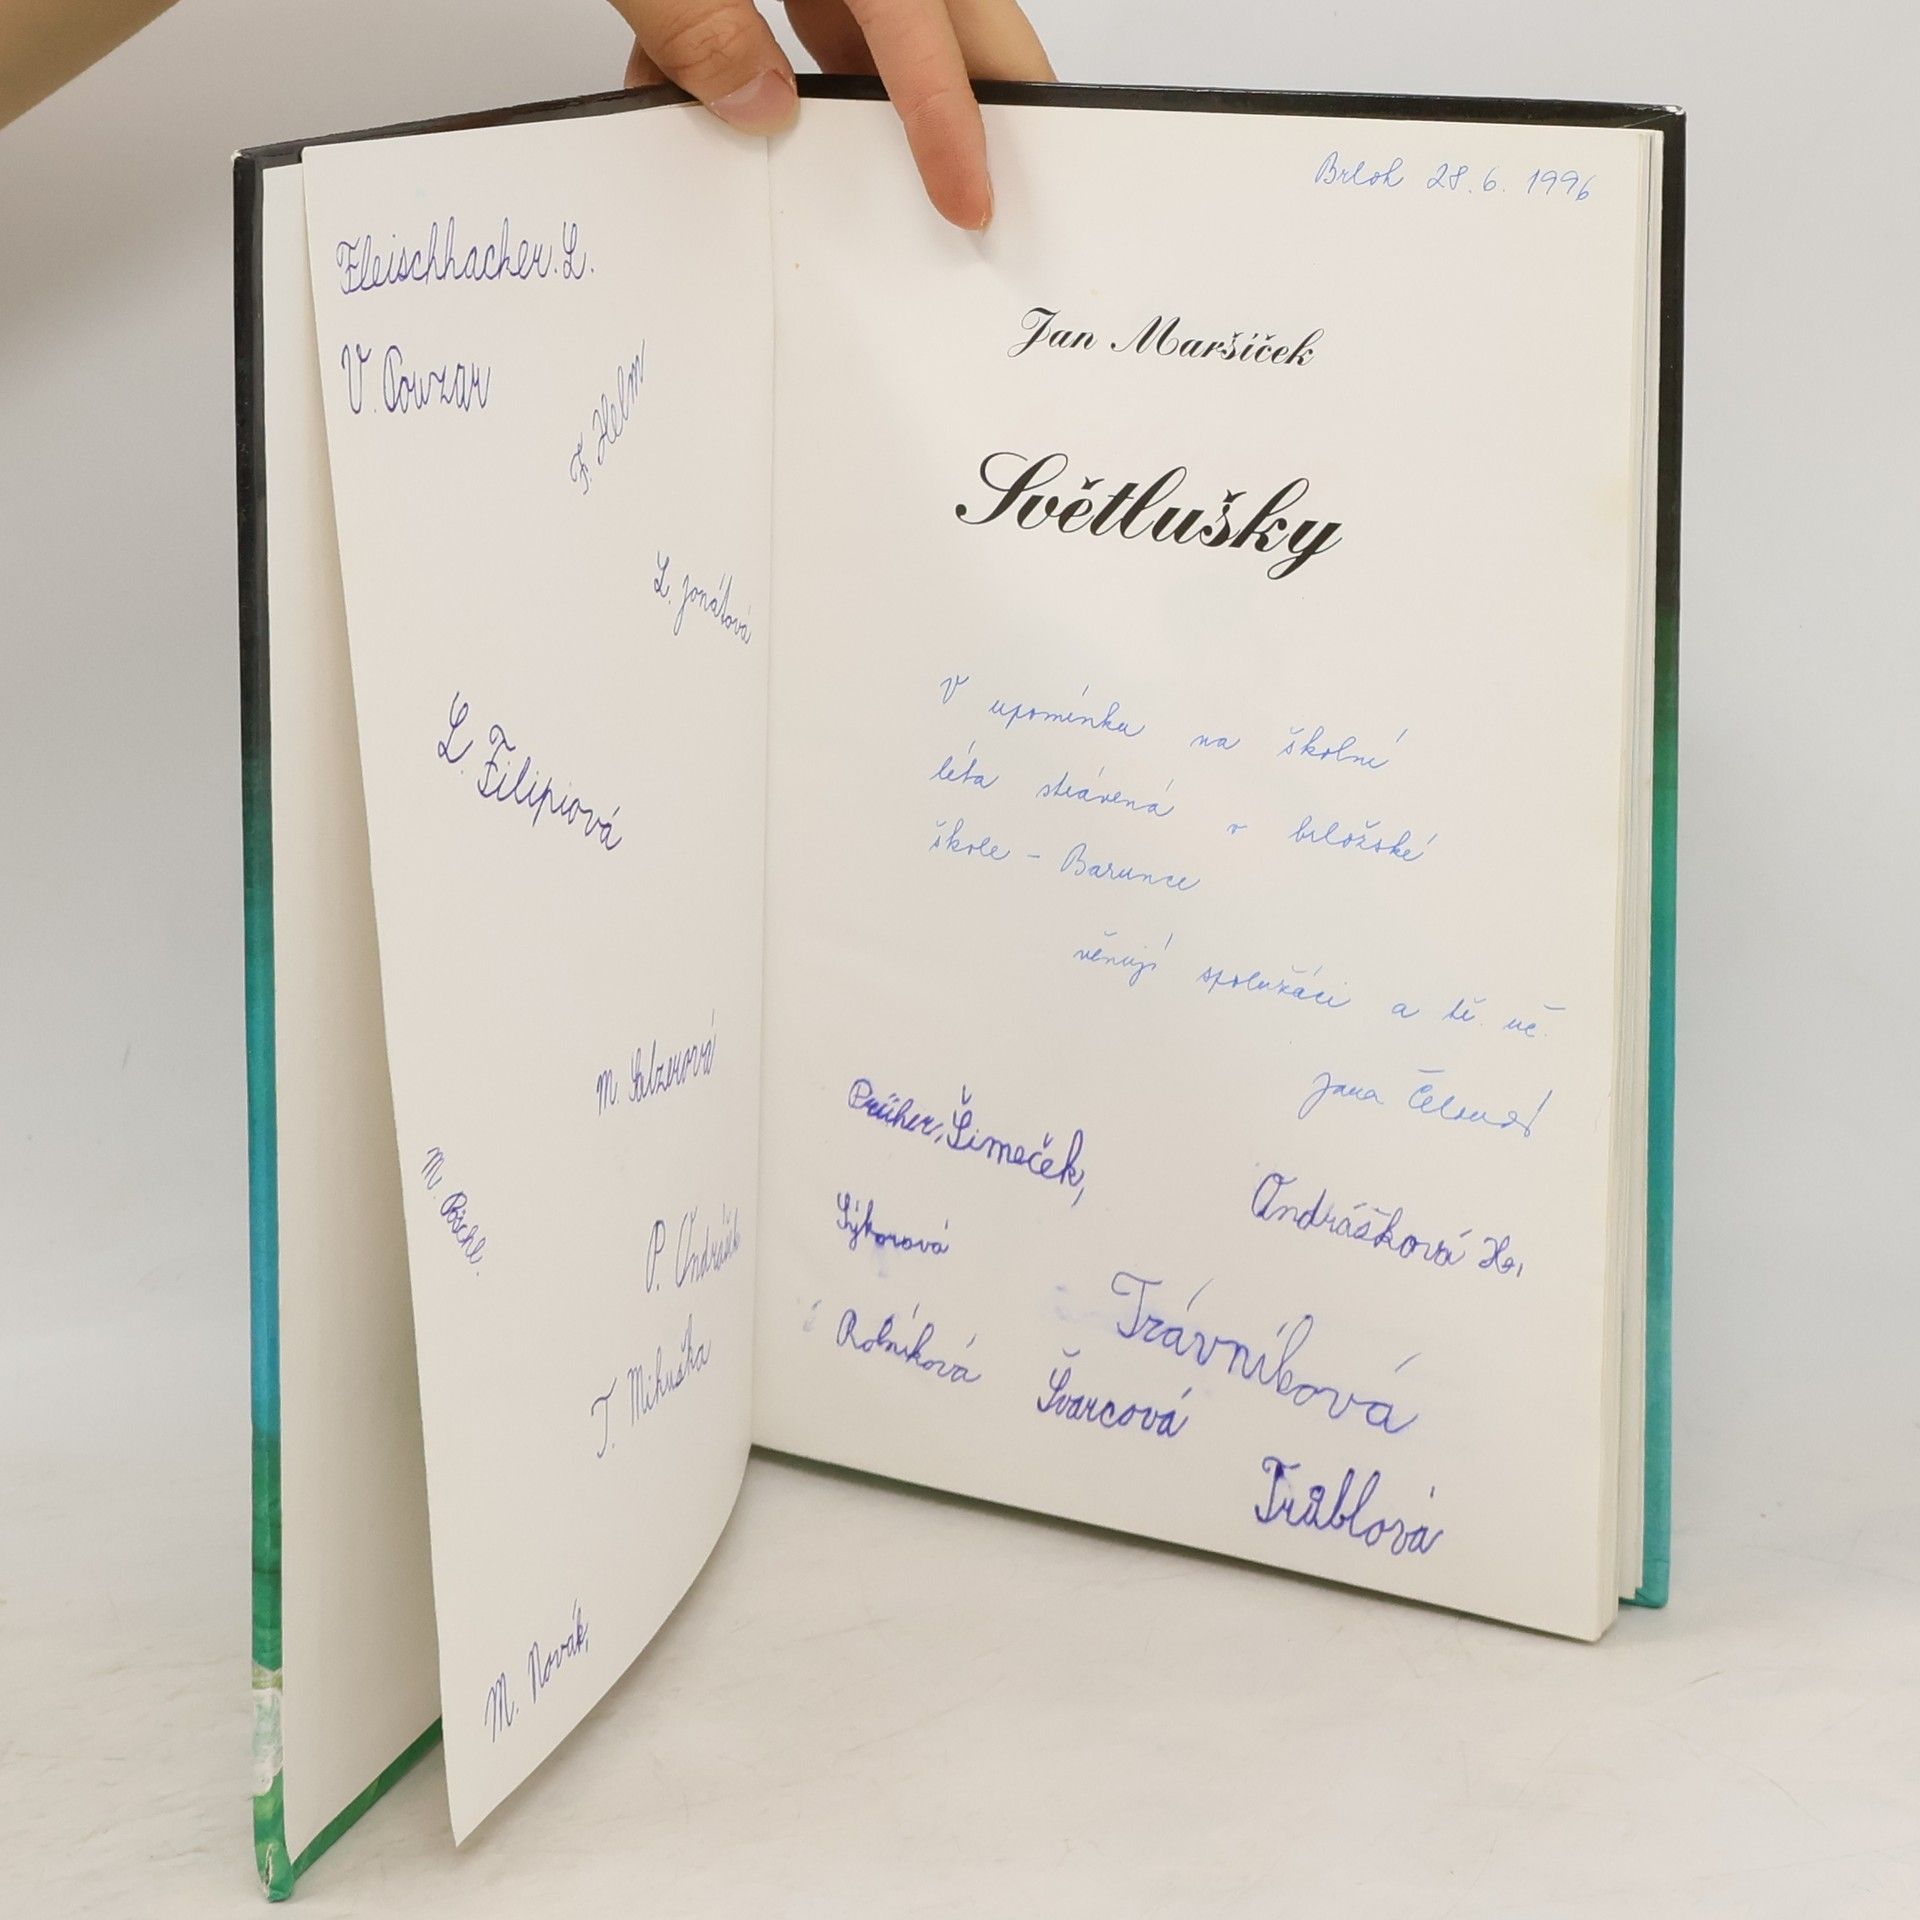 Fleischhacker. L.
V. Pouzar
F. Helm
L. Jonátová
L. Filipiová
M. Salzerová
M. Pöschl.
P. Ondrášek
T. Mihuška
M. Novák,
Brloh 28. 6. 1996
Jan Maršíček
Světlušky
V upomínku na školní
léta strávená v brložské
škole - Barunce
věnují spolužáci a tř. uč.
Jana
Průher, Šimeček,
Ondrášková
Sýkorová
Trávníková
Rolníková
Švarcová
Trůblová